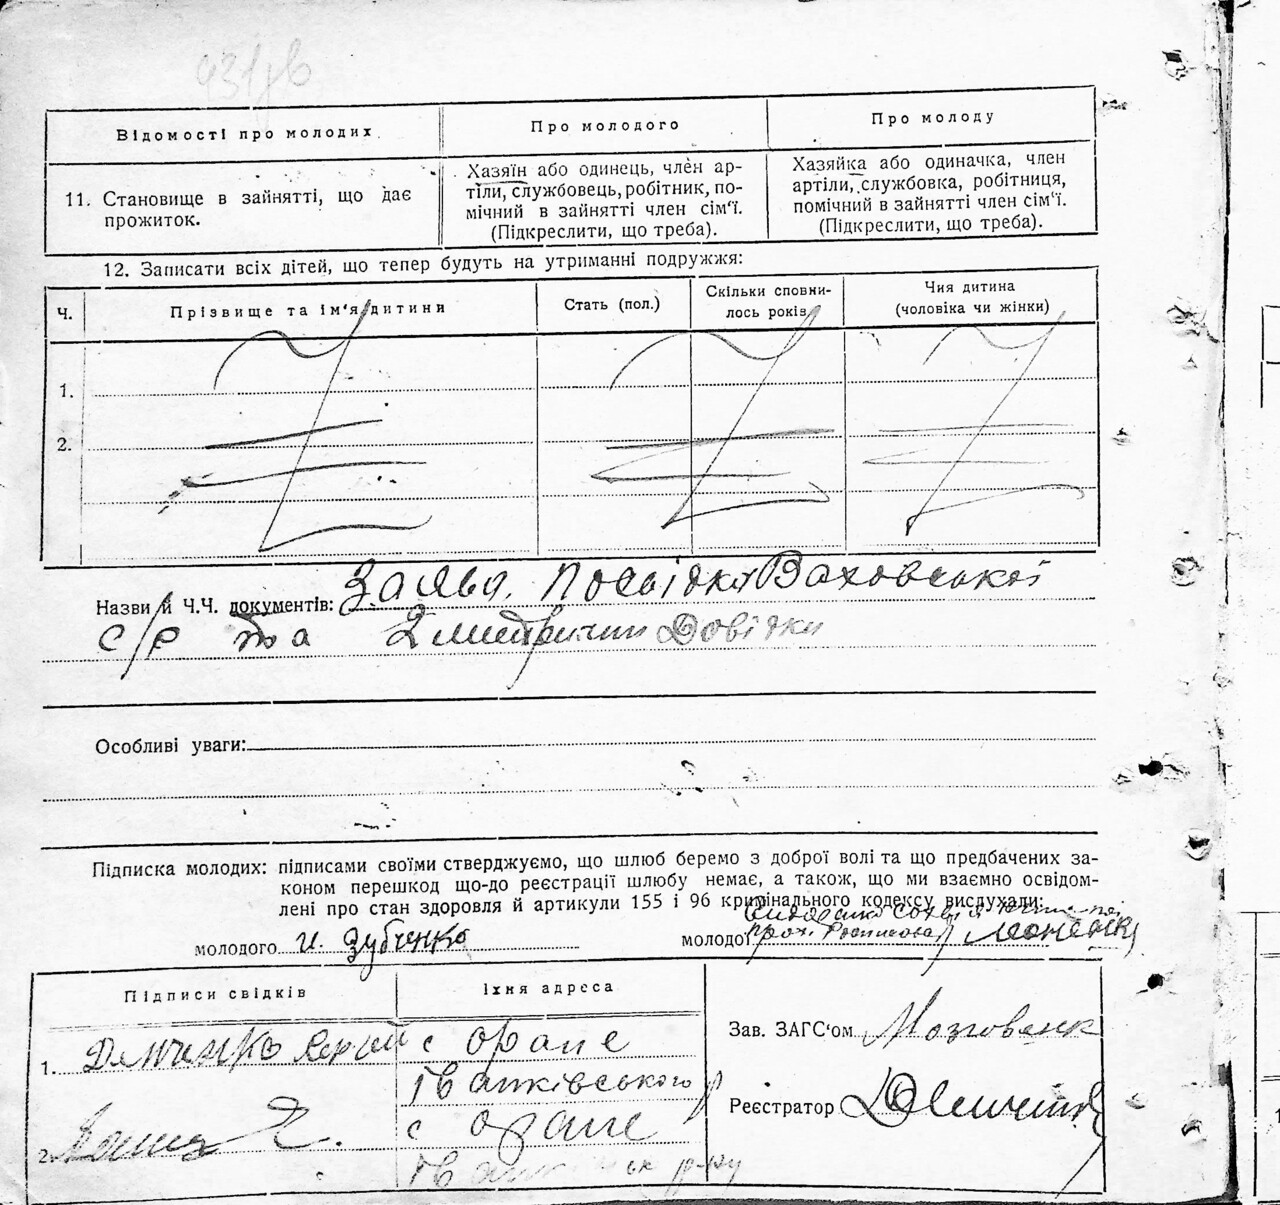 Відомості про молодих
Про молодого
Про молоду
11. Становище в зайнятті, що дає прожиток.
Хазяїн або одинець, член ар-
тіли, службовець, робітник, по-
мічний в зайнятті член сім'ї.
(Підкреслити, що треба).
Хазяйка або одиначка, член
артіли, службовка, робітниця,
помічний в зайнятті член сім'ї.
(Підкреслити, що треба).
12. Записати всіх дітей, що тепер будуть на утриманні подружжя:
Ч.
Прізвище та ім'я дитини
Стать (пол.)
Скільки сповни-
лось років
Чия дитина
(чоловіка чи жінки)
1.
2.
Назви й Ч.Ч. документів: Заява, Посвідка Ваховської
с/р та Довідки
Особливі уваги:
Підписка молодих: підписами своїми стверджуємо, що шлюб беремо з доброї волі та що предбачених за-
коном перешкод що-до реєстрації шлюбу немає, а також, що ми взаємно освідом-
лені про стан здоровля й артикули 155 і 96 кримінального кодексу вислухали:
молодого И. Зубченко
молодої
Підписи свідків
їхня адреса
1. Демченко с Оране
Іванківського р
2. с Оране
Зав. ЗАГС'ом
Реєстратор